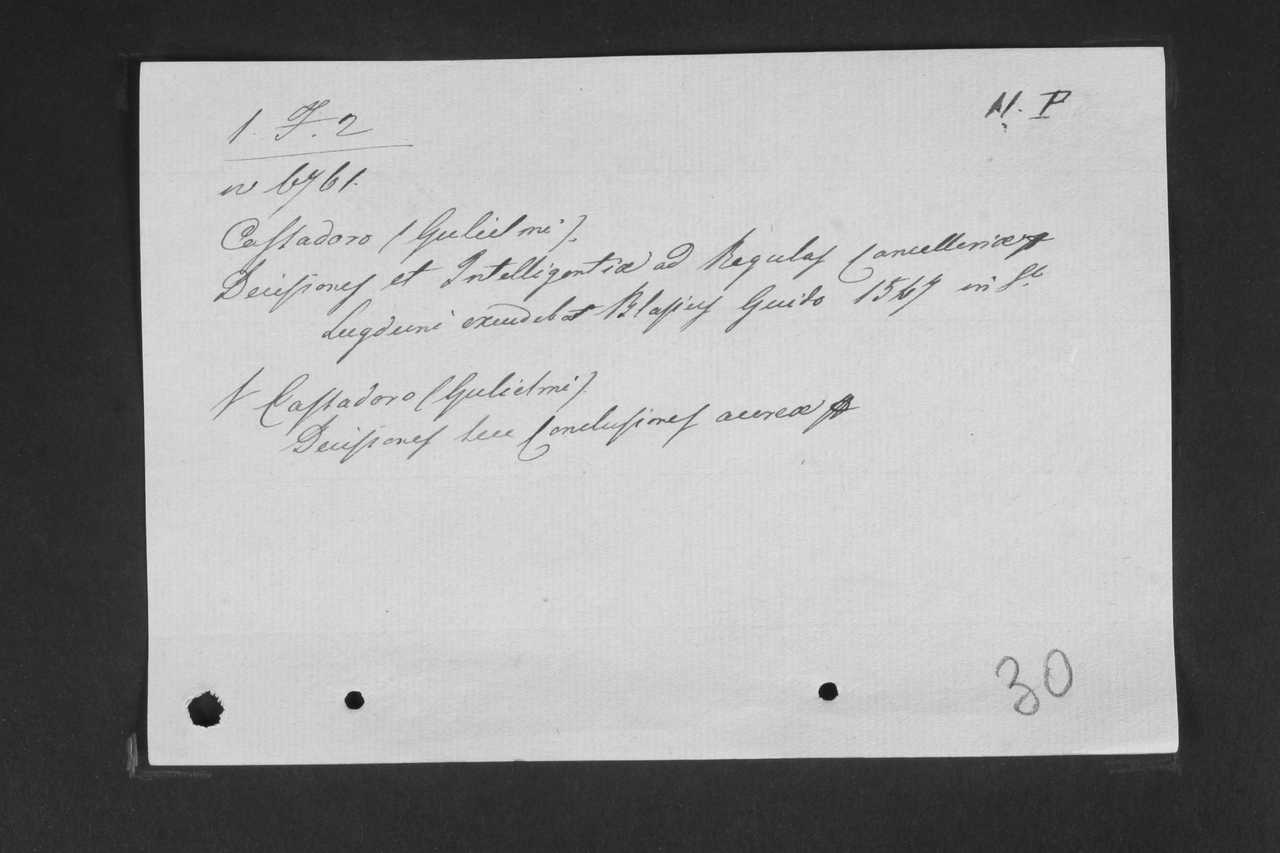 1. F. 2
N. P
№ 6761.
Cassadoro (Gulielmi).
Decisiones et Intelligentiæ ad Regulas Cancelleriæ
Lugduni excudebat Blasius Guido 1567 in 8º
+ Cassadoro (Gulielmi)
Decisiones seu Conclusiones aureæ
30